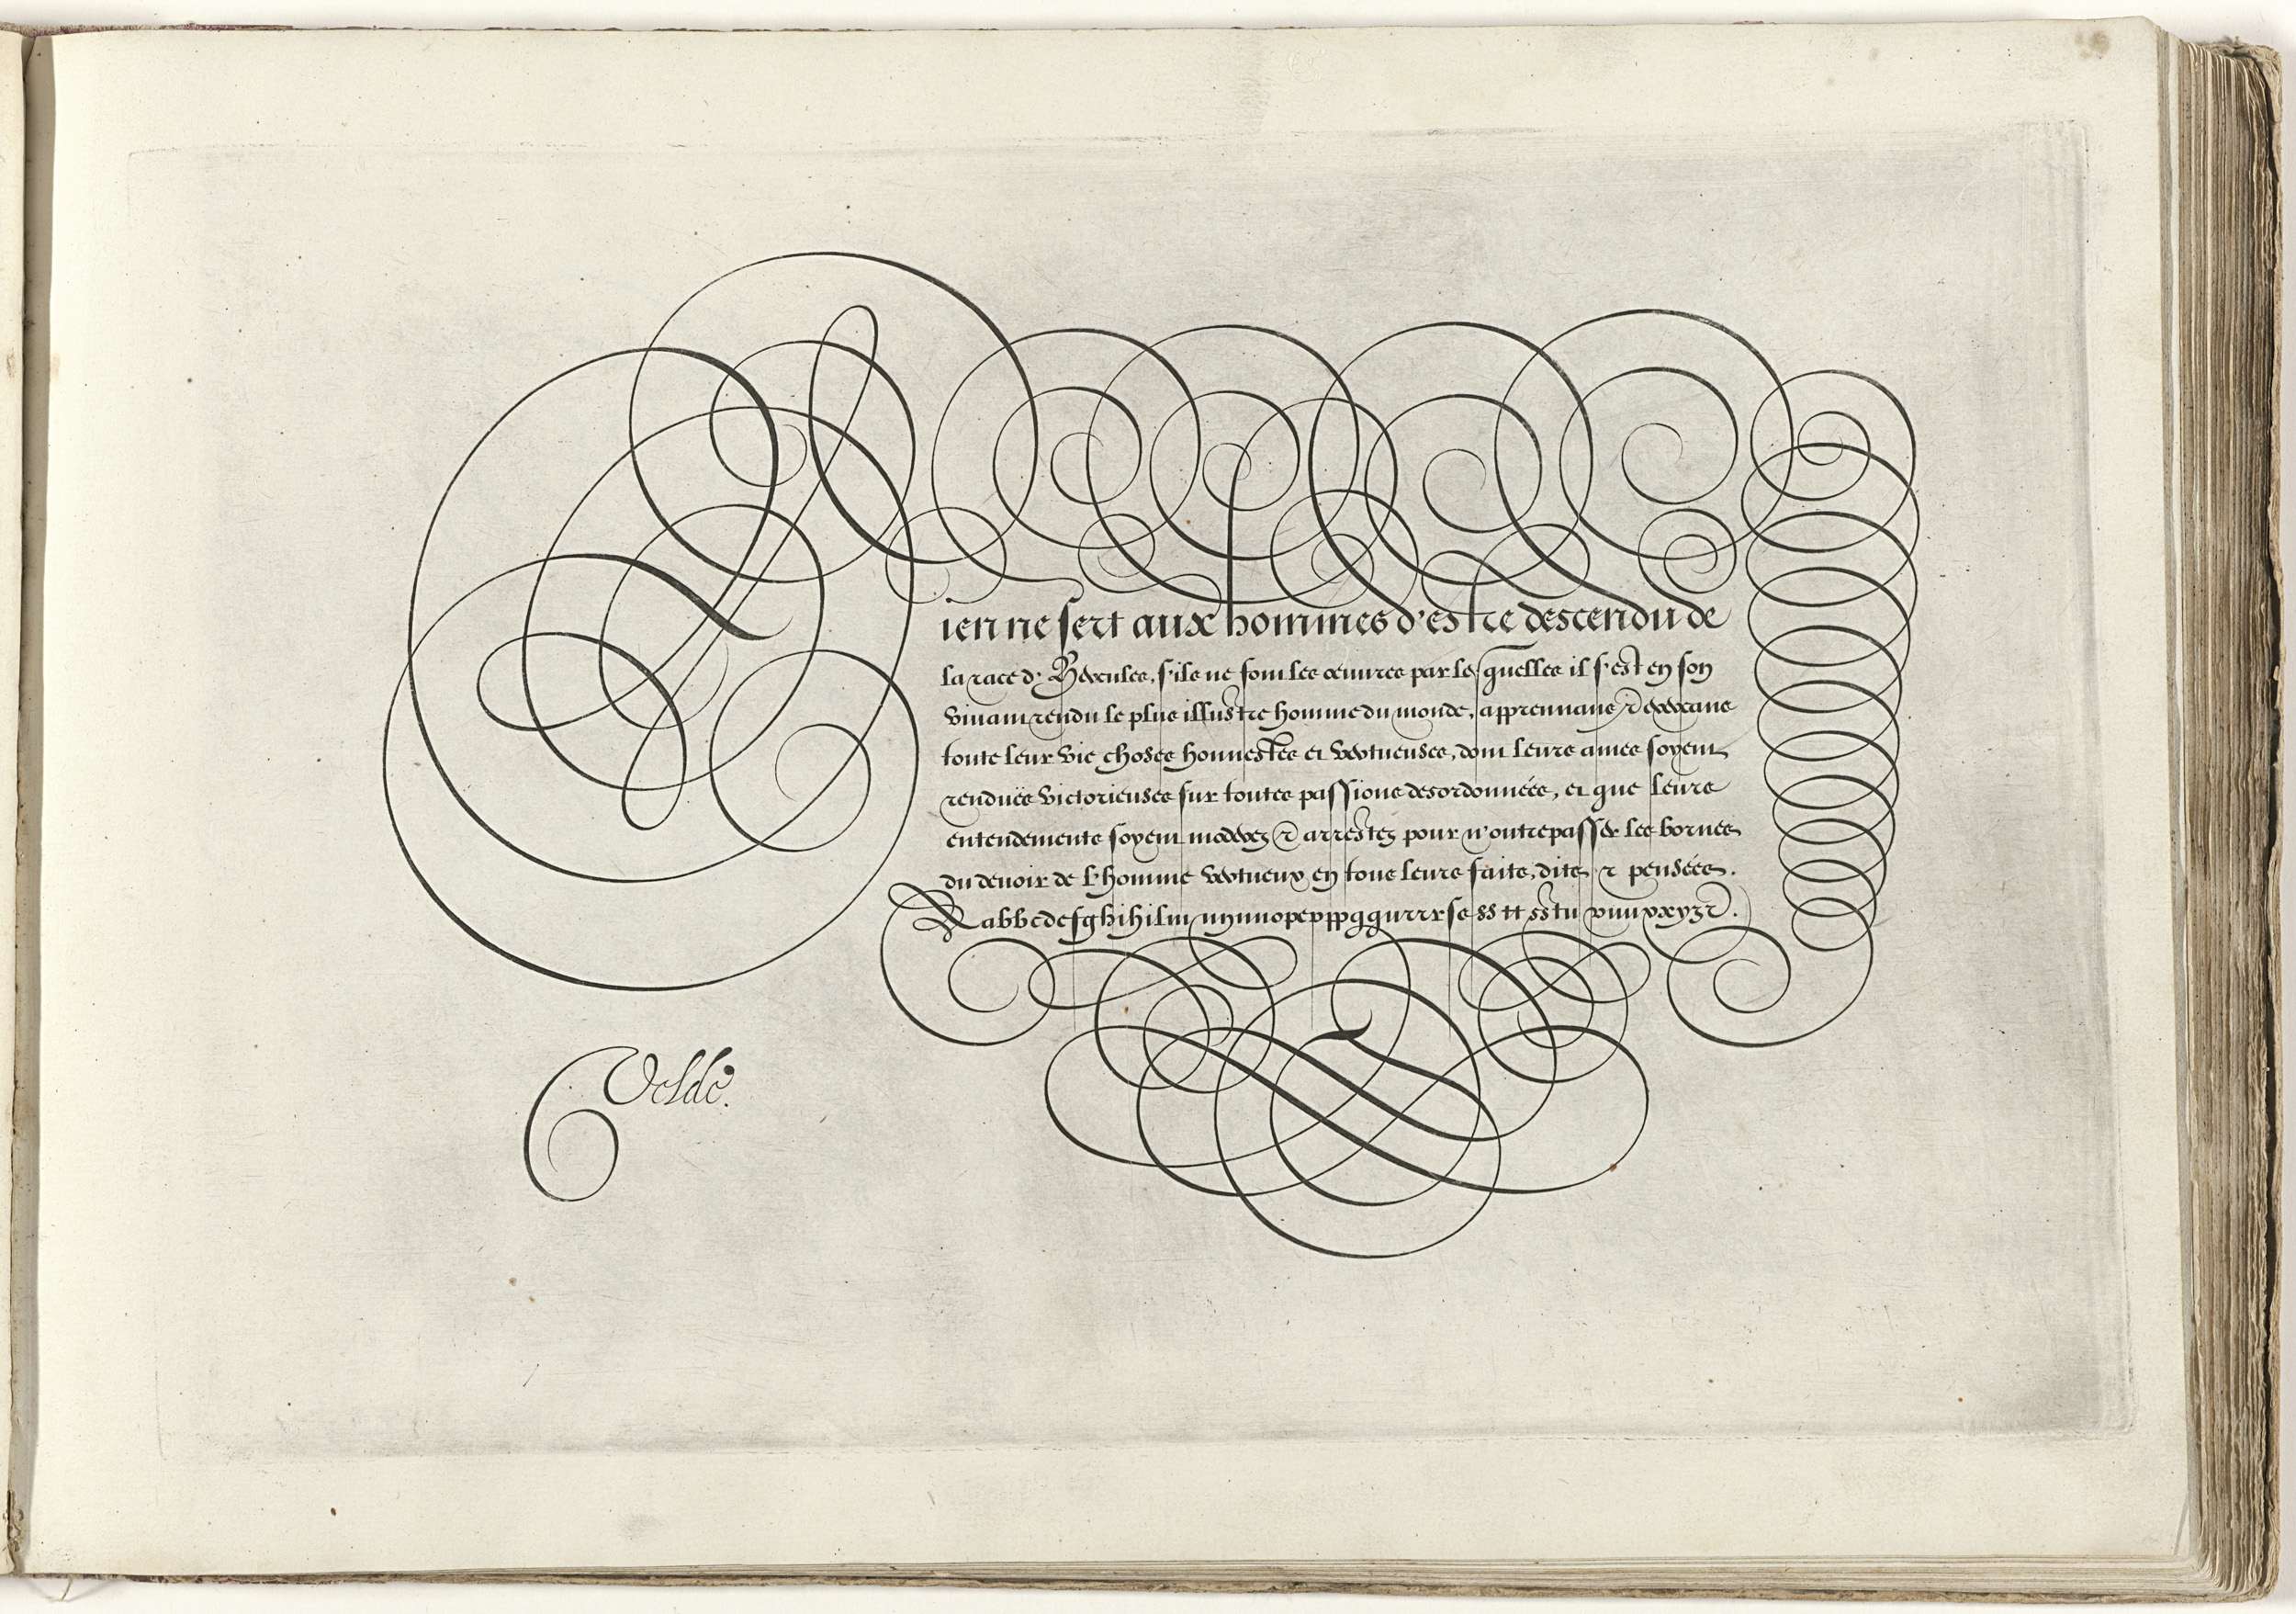 Rien ne sert aux hommes d'estre descendu de
la race d'Hercules, s'ils ne font les œuures par lesquelles il s'est en son
viuant rendu le plus illustre homme du monde, apprennans & exercans
toute leur vie choses honnestes et vertueuses, dont leurs ames soyent
renduës victorieuses sur toutes passions desordonnées, et que leurs
entendements soyent moderez & arrestez pour n'outrepasser les bornes
du deuoir de l'homme vertueux en tous leurs faits, dits, & pensées.
Velde.